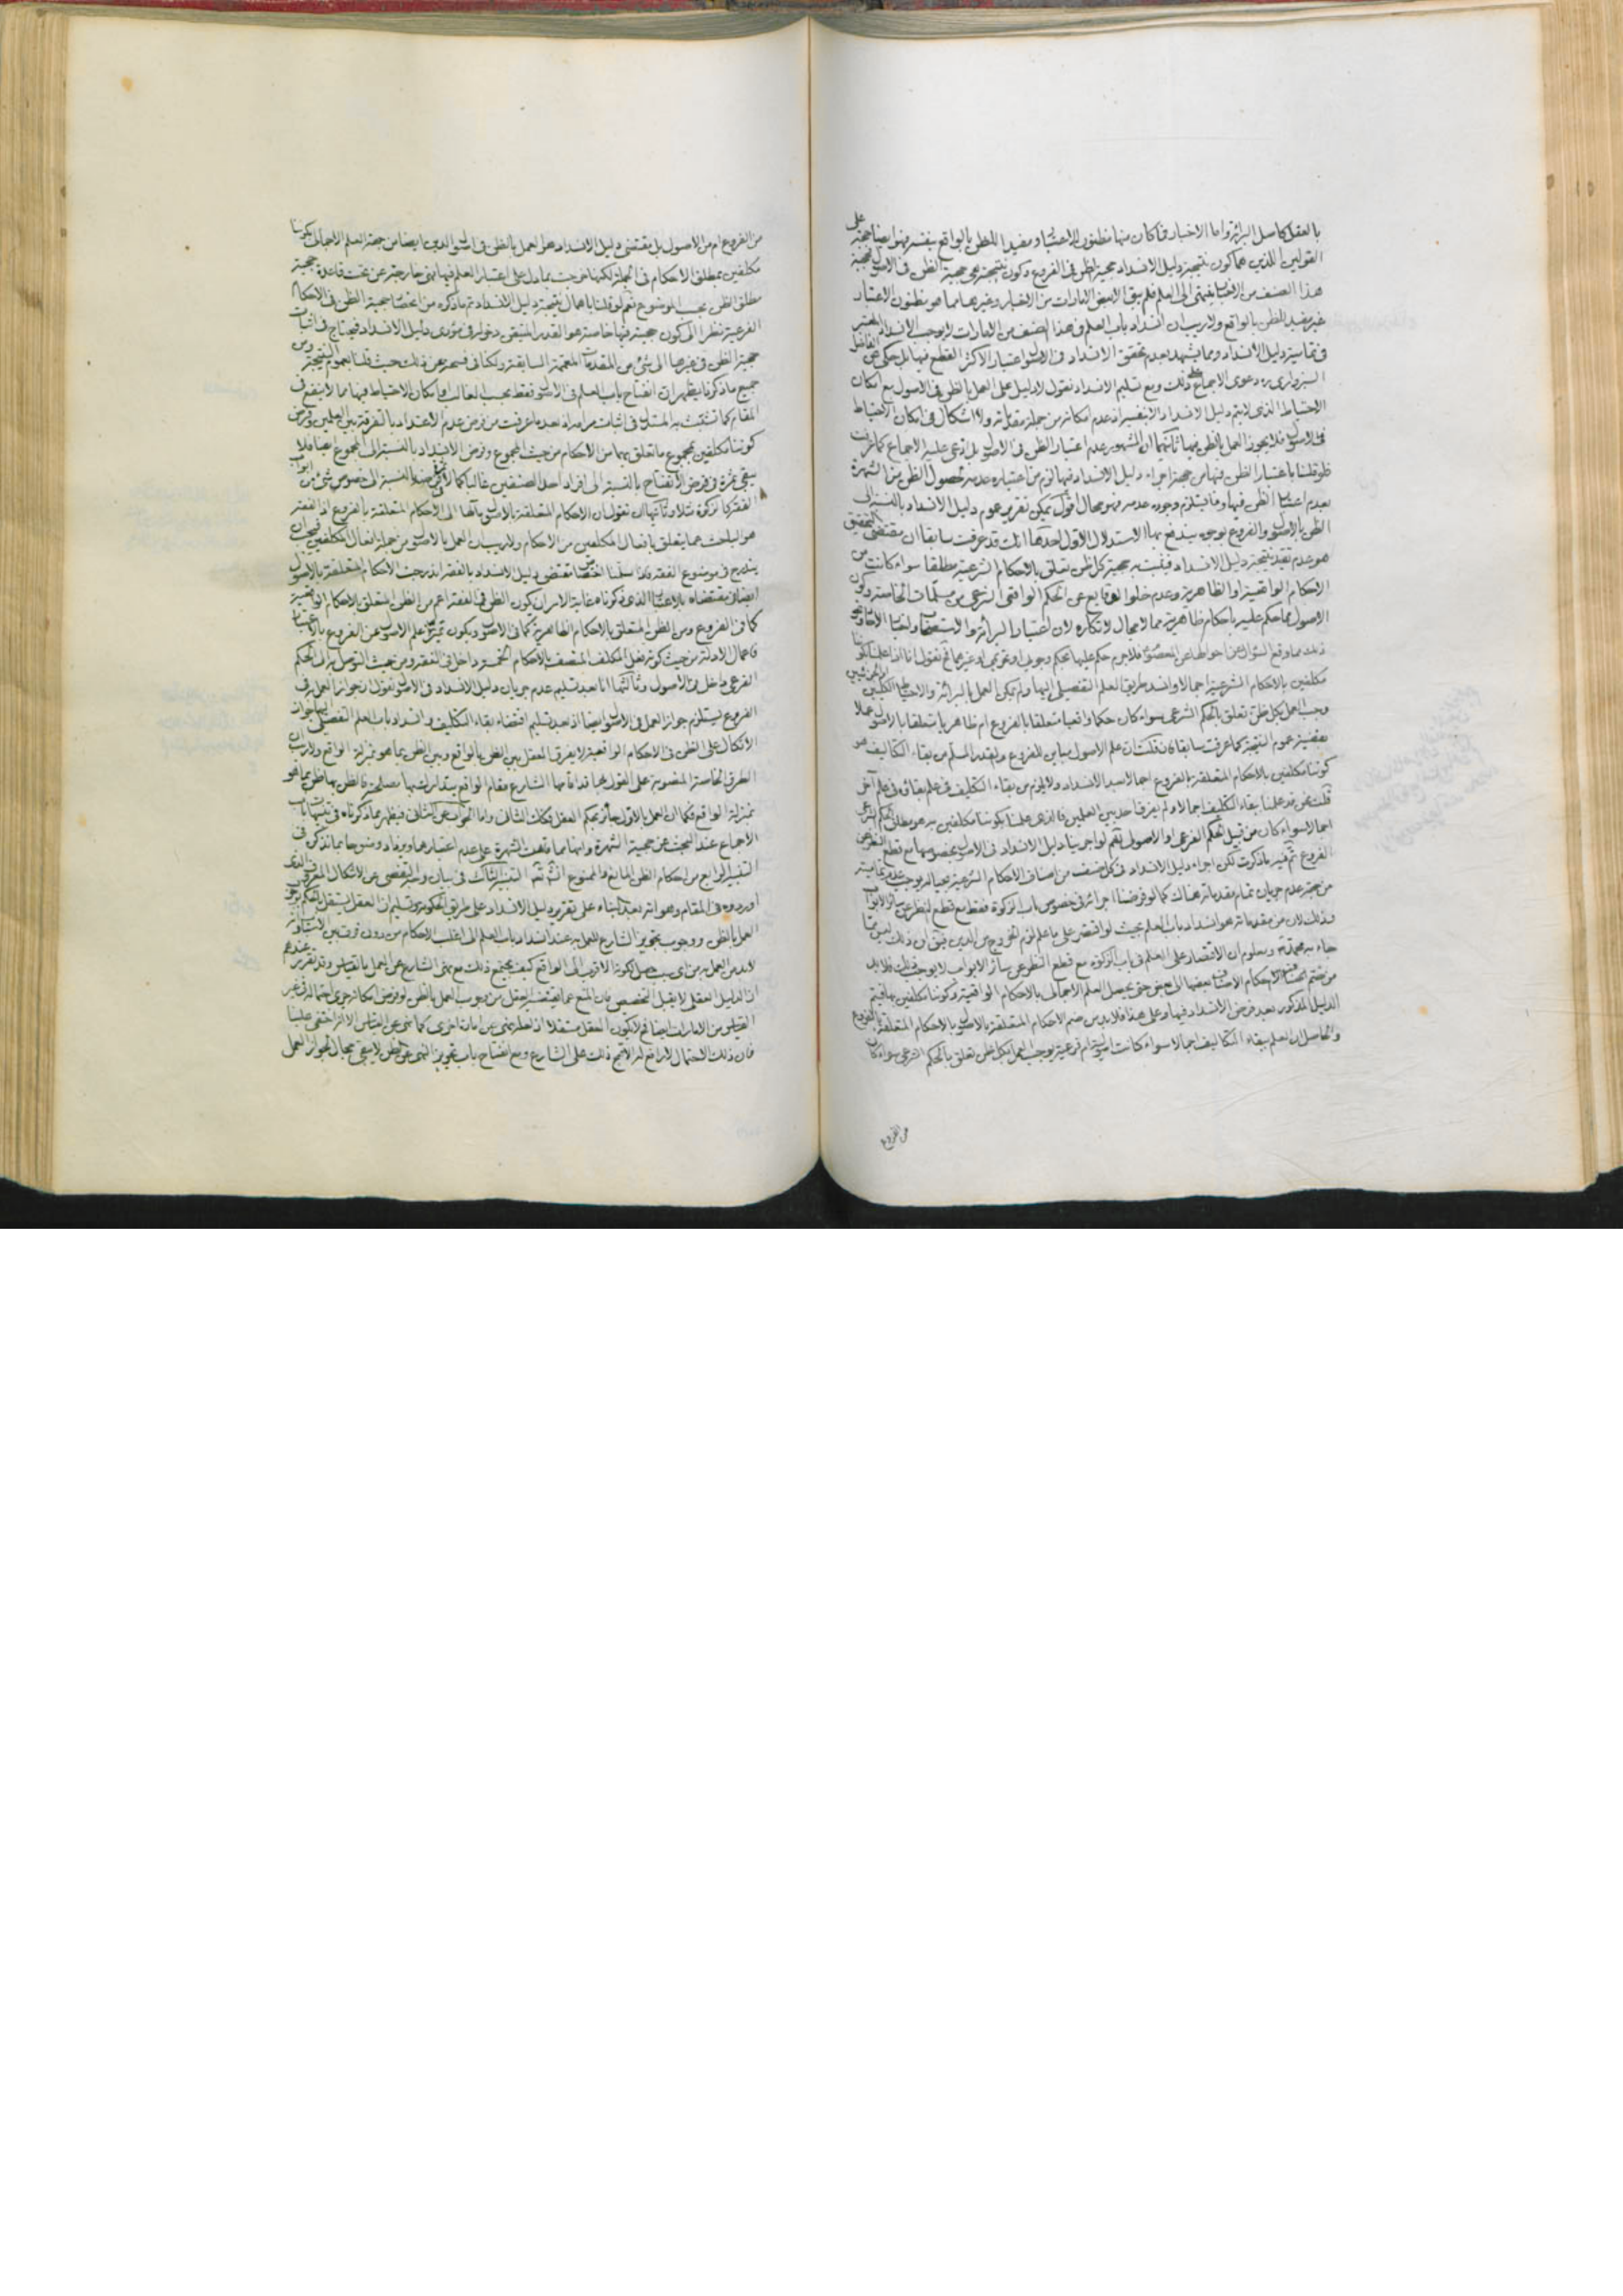 بالعقل كاصل البرائة واما الاخبار فما كان منها مظنون الاعتبار ومفيدا للظن بالواقع بنفسه فهو ايضا حجة على
القولين اللذين هما كون نتيجة دليل الانسداد حجية الظن فى الفروع وكون نتيجته هى حجية الظن فى الاصول فحجية
هذا الصنف من الاخبار ينتهى الى العلم فلم يبق الا بعض الامارات من الاخبار وغيرها مما هو مظنون الاعتبار
غير مفيد للظن بالواقع ولا ريب ان انسداد باب العلم فى هذا الصنف من الامارات لا يوجب الانسداد المعتبر
فى تمامية دليل الانسداد ومما يشهد بعدم تحقق الانسداد فى الاصول اعتبار الاكثر القطع فيها بل حكى عن الفاضل
السبزوارى ره دعوى الاجماع على ذلك ومع تسليم الانسداد نقول لا دليل على العمل بالظن فى الاصول مع امكان
الاحتياط الذى لا يتم دليل الانسداد الا بنفيه اذ عدم امكانه من جملة مقدماته ولا اشكال فى امكان الاحتياط
فى الاصول فلا يجوز العمل بالظن فيها ثانيهما ان المشهور عدم اعتبار الظن فى الاصول بل ادعى عليه الاجماع كما عرفت
فلو قلنا باعتبار الظن فيها من جهة اجراء دليل الانسداد فيها لزم من اعتباره عدمه لحصول الظن من الشهرة
بعدم اعتبار الظن فيها وما يستلزم وجوده عدمه فهو محال اقول يمكن تقرير عموم دليل الانسداد بالنسبة الى
الظن بالاصول والفروع بوجوه يندفع بها الاستدلال الاول احدها انك قد عرفت سابقا ان مقتضى التحقيق
هو عدم تقييد نتيجة دليل الانسداد فيثبت به حجية كل ظن تعلق بالاحكام الشرعية مطلقا سواء كانت من
الاحكام الواقعية او الظاهرية وعدم خلو الوقايع عن الحكم الواقعى الشرعى من مسلمات الخاصة وكون
الاصول مما حكم عليه باحكام ظاهرية مما لا مجال لانكاره لان اعتبار البرائة والاستصحاب واخبار الاحاد ونحو
ذلك مما وقع السؤال عن احوالها عن المعصوم فلا جرم حكم عليها بحكم وجوبى او تحريمى او غيرهما ثم نقول انا اذا علمنا بكوننا
مكلفين بالاحكام الشرعية اجمالا وانسد طريق العلم التفصيلى اليها ولم يمكن العمل بالبرائة والاحتياط الكليين
وجب العمل بكل ظن تعلق بالحكم الشرعى سواء كان حكما واقعيا متعلقا بالفروع ام ظاهريا متعلقا بالاصول عملا
بقضية عموم النتيجة كما عرفت سابقا فان قلت ان علم الاصول مباين للفروع والقدر المسلم من بقاء التكاليف هو
كوننا مكلفين بالاحكام المتعلقة بالفروع اجمالا بعد الانسداد ولا يلزم من بقاء التكليف فى علم بقائه فى علم آخر
قلت نحن قد علمنا بقاء التكليف اجمالا ولم يفرق احد بين العلمين فالذى علمنا بكوننا مكلفين به هو مطلق الحكم الشرعى
اجمالا سواء كان من قبيل الحكم الفرعى او الاصول نعم لو اجرينا دليل الانسداد فى الاصول بخصوصها مع قطع النظر عن
الفروع تم فيه ما ذكرت لكن اجراء دليل الانسداد فى كل صنف من اصناف الاحكام الشرعية بحياله يوجب عدم تماميته
من جهة عدم جريان تمام مقدماته هناك كما لو فرضنا اجرائه فى خصوص باب الزكوة فقط مع قطع النظر عن سائر الابواب
وذلك لان من مقدماته هو انسداد باب العلم بحيث لو اقتصر على ما علم لزم الخروج من الدين فيق ان ذلك ليس مما
جاء به محمد ص ومعلوم ان الاقتصار على العلم فى باب الزكوة مع قطع النظر عن سائر الابواب لا يوجب ذلك فلا بد
من ضم اصناف الاحكام بعضها الى بعض حتى يحصل العلم الاجمالى بالاحكام الواقعية وكوننا مكلفين بها فيتم
الدليل المذكور بعد فرض الانسداد فيها وعلى هذا فلا بد من ضم الاحكام المتعلقة بالاصول بالاحكام المتعلقة بالفروع
والحاصل ان العلم ببقاء التكاليف اجمالا سواء كانت اصولية ام فرعية يوجب العمل بكل ظن تعلق بالحكم الشرعى سواء كان
من الفروع
من الفروع ام من الاصول بل مقتضى دليل الانسداد هو العمل بالظن فى اصول الدين ايضا من جهة العلم الاجمالى بكوننا
مكلفين بمطلق الاحكام فى الجملة لكنها خرجت بما دل على اعتبار العلم فيها فهى خارجة عن تحت قاعدة حجية
مطلق الظن بحسب الموضوع نعم لو قلنا باهمال نتيجة دليل الانسداد تم ما ذكره من اختصاص حجية الظن فى الاحكام
الفرعية نظرا الى كون حجيته فيها خاصة هو القدر المتيقن دخوله فى مؤدى دليل الانسداد فيحتاج فى اثبات
حجية الظن فى غيرها الى شئ من المقدمات المعممة السابقة ولكنا فى فسحة عن ذلك حيث قلنا بعموم النتيجة ومن
جميع ما ذكرنا يظهر ان انفتاح باب العلم فى الاصول فقط بحسب الغالب وامكان الاحتياط فيها مما لا ينفع فى
المقام كما تشبث به المستدل فى اثبات مرامه اذ بعد ما عرفت من عدم الاعتداد بالتفرقة بين العلمين وفرض
كوننا مكلفين بمجموع ما تعلق بهما من الاحكام من حيث المجموع وفرض الانسداد بالنسبة الى المجموع ايضا فلا
يبقى ثمرة فى فرض الانفتاح بالنسبة الى افراد احد الصنفين غالبا كما لا يضر بالنسبة الى خصوص شئ من ابواب
الفقه كالزكوة مثلا وثانيها ان نقول ان الاحكام المتعلقة بالاصول مآلها الى الاحكام المتعلقة بالفروع اذ الفقه
هو الباحث عما يتعلق بافعال المكلفين من الاحكام ولا ريب ان العمل بالاصول من جملة افعال المكلفين فيجب ان
يندرج فى موضوع الفقه فاذا سلمنا اختصاص مقتضى دليل الانسداد بالفقه اندرجت الاحكام المتعلقة بالاصول
ايضا فى مقتضاه بالاعتبار الذى ذكرناه غاية الامر ان يكون الظن فى الفقه اعم من الظن المتعلق بالاحكام الواقعية
كما فى الفروع ومن الظن المتعلق بالاحكام الظاهرية كما فى الاصول ويكون تميز علم الاصول عن الفروع بالاعتبار
فاعمال الادلة من حيث كونه فعل المكلف المتصف بالاحكام الخمسة داخل فى الفقه ومن حيث التوصل به الى الحكم
الفرعى داخل فى الاصول وثالثها انا بعد تسليم عدم جريان دليل الانسداد فى الاصول نقول ان جواز العمل به فى
الفروع يستلزم جواز العمل فى الاصول ايضا اذ بعد تسليم اقتضاء بقاء التكليف وانسداد باب العلم التفصيلى اليها جواز
الاتكال على الظن فى الاحكام الواقعية لا يفرق العقل بين الظن بالواقع وبين الظن بما هو بمنزلة الواقع ولا ريب ان
الطرق الخاصة المنصوبة على القول بها قد اقامها الشارع مقام الواقع يتدارك بها مصلحته فالظن بها ظن بما هو
بمنزلة الواقع فكما ان العمل بالاول جائز بحكم العقل فكذلك الثانى واما الجواب عن الثانى فيظهر مما ذكرناه فى تنبيهات
الاجماع عند البحث عن حجية الشهرة وانها مما وقعت الشهرة على عدم اعتبارها ويزداد وضوحا بما نذكر فى
التنبيه الرابع من احكام الظن المانع والممنوع انشاء الله تعالى التنبيه الثالث فى بيان والتفصى عن الاشكال المعروف الذى
اوردوه فى المقام وهو انه بعد البناء على تقرير دليل الانسداد على طريق الحكومة وتسليم ان العقل يستقل بالحكم بوجوب
العمل بالظن ووجوب تجويز الشارع للعمل به عند انسداد باب العلم الى اغلب الاحكام من دون فرق بين الاسباب وانه
لا بد من العمل به من اى سبب حصل لكونه الاقرب الى الواقع كيف يجتمع ذلك مع نهى الشارع عن العمل بالقياس وقد تقرر عندهم
ان الدليل العقلى لا يقبل التخصيص فان المنع عما يقتضيه العقل من وجوب العمل بالظن لو فرض امكانه جرى احتماله فى غير
القياس من الامارات ايضا فلا يكون العقل مستقلا اذ لعله نهى عن امارة اخرى كما نهى عن القياس الا انه اختفى علينا
فان ذلك الاحتمال لا رافع له الا قبح ذلك على الشارع ومع انفتاح باب تجويز النهى عن الظن لا يبقى مجال لجواز العمل